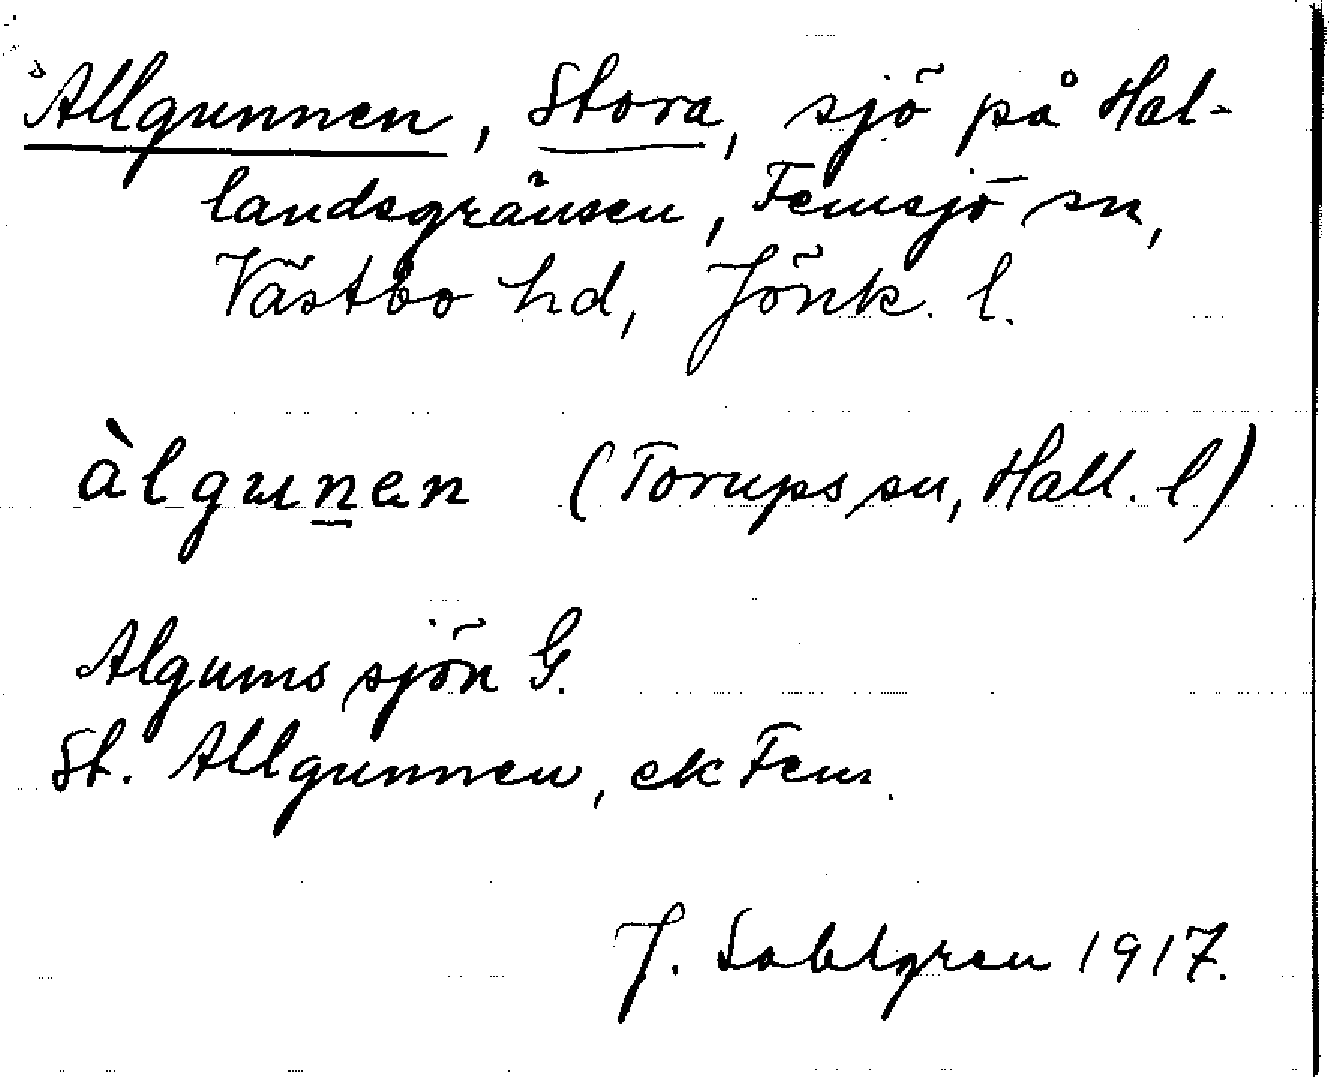 Allgunnen, Stora, sjö på Hal-
landsgränsen, Femsjö sn,
Västbo hd, Jönk. l.
àlgunen (Torups sn, Hall. l)
Algums sjön G.
St. Allgunnen, ek Fem.
J. Sahlgren 1917.